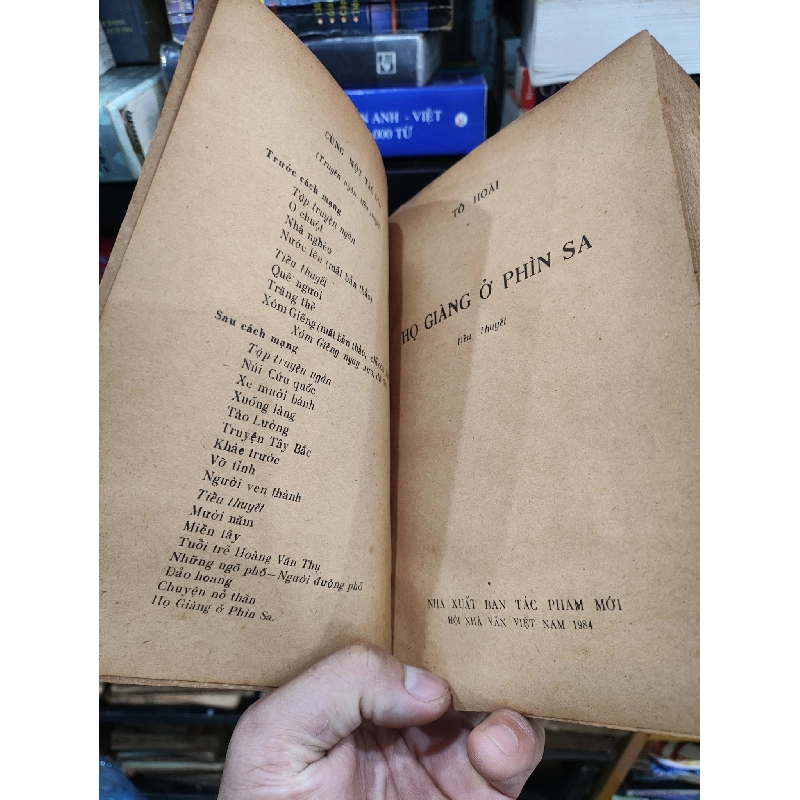 N ANH - VIỆT
000 TỪ
CÙNG MỘT TÁC
(Truyện ngắn, tiểu
Trước cách mạng
Tập truyện ngắn
O chuột
Nhà nghèo
Nước lên (mất bản thảo)
Tiểu thuyết
Quê người
Trăng thề
Xóm Giếng (mất bản thảo,
Xóm Giếng ngày xưa,
Sau cách mạng
Tập truyện ngắn
Núi Cứu quốc
Xe mười bánh
Xuống làng
Tào Lường
Truyện Tây Bắc
Khác trước
Vỡ tỉnh
Người ven thành
Tiểu thuyết
Mười năm
Miền tây
Tuổi trẻ Hoàng Văn Thụ
Những ngõ phố – Người đường phố
Đảo hoang
Chuyện nỏ thần
Họ Giàng ở Phìn Sa.
TÔ HOÀI
HỌ GIÀNG Ở PHÌN SA
tiểu thuyết
NHA XUẤT BAN TÁC PHAM MỚI
HỘI NHÀ VĂN VIỆT NAM 1984